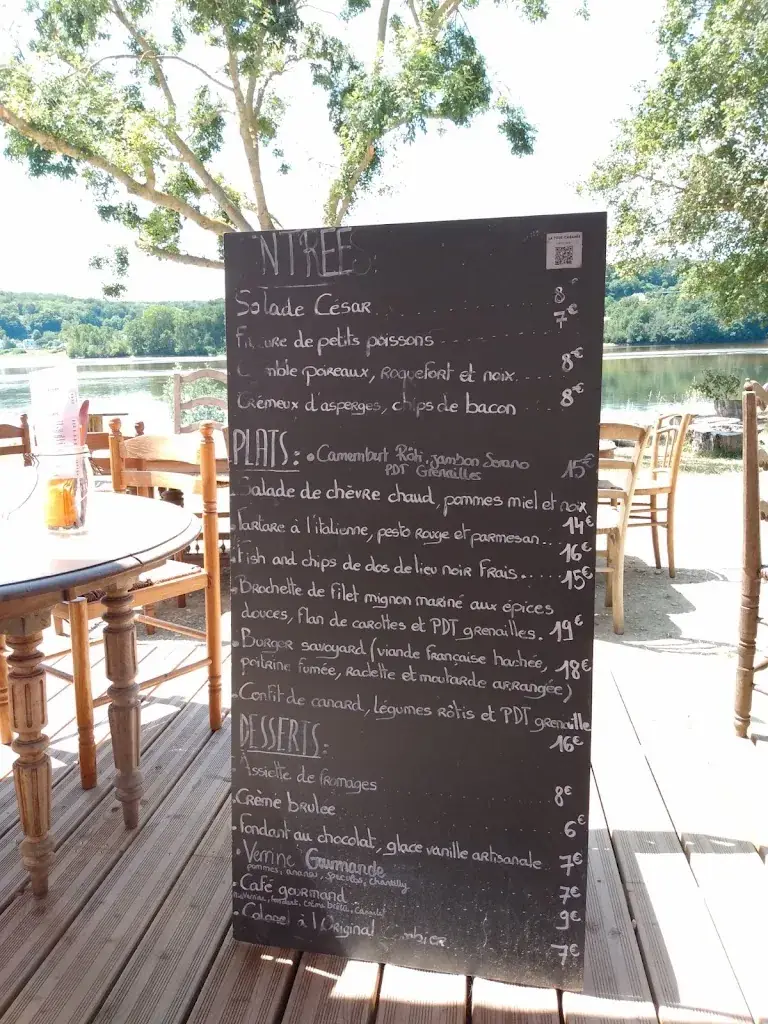 NTREES:
Salade César ......... 8€
Friture de petits poissons ......... 7€
poireaux, roquefort et noix ......... 8€
Crémeux d'asperges, chips de bacon ......... 8€
PLATS: • Camembert Rôti, jambon Serano
PDT Grenailles 15€
• Salade de chèvre chaud, pommes miel et noix
14€
• Tartare à l'italienne, pesto rouge et parmesan...
16€
• Fish and chips de dos de lieu noir frais..... 15€
• Brochette de filet mignon mariné aux épices
douces, flan de carottes et PDT grenailles. 19€
• Burger savoyard (viande française hachée, 18€
poitrine fumée, raclette et moutarde arrangée)
• Confit de canard, légumes rôtis et PDT grenaille
16€
DESSERTS:
• Assiette de fromages ......... 8€
• Crème brulee ......... 6€
• Fondant au chocolat, glace vanille artisanale 7€
• Verrine Gourmande ......... 7€
pommes, ananas, speculos, chantilly
• Café gourmand ......... 9€
fondant, crème brûlée
• Colonel à l'Original 7€